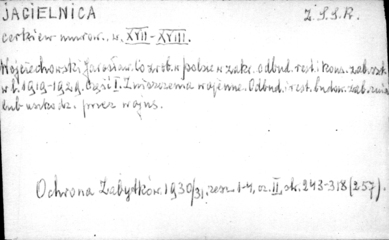 JAGIELNICA Z.S.S.R.
cerkiew murow. w. XVII-XVIII.
Wojciechowski Jarosław. Co zrob. w Polsce w zakr. odbud. rest. i kons. zab. szt.
w l. 1919-1929. Część I. Zniszczenia wojenne. Odbud. i rest. budow. zab. zniszcz.
lub uszkodz. przez wojnę.
Ochrona Zabytków. 1930/31, zesz. 1-4, cz. II, str. 243-318 (257).